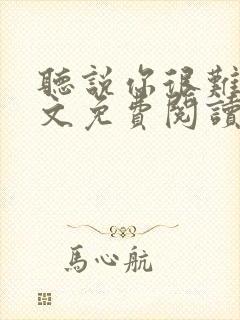 聽說你很難
文免費閱讀
馬心航